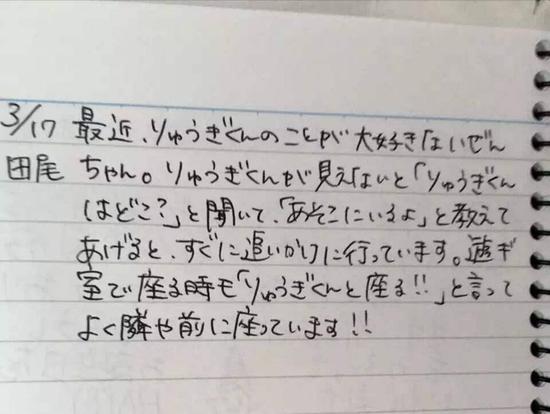 3/17 最近、りゅうぎくんのことが大好きないぜん
田尾 ちゃん。りゅうぎくんが見えないと「りゅうぎくん
はどこ?」と聞いて、「あそこにいるよ」と教えて
あげると、すぐに追いかけに行っています。遊ぎ
室で座る時も「りゅうぎくんと座る!!」と言って
よく隣や前に座っています!!